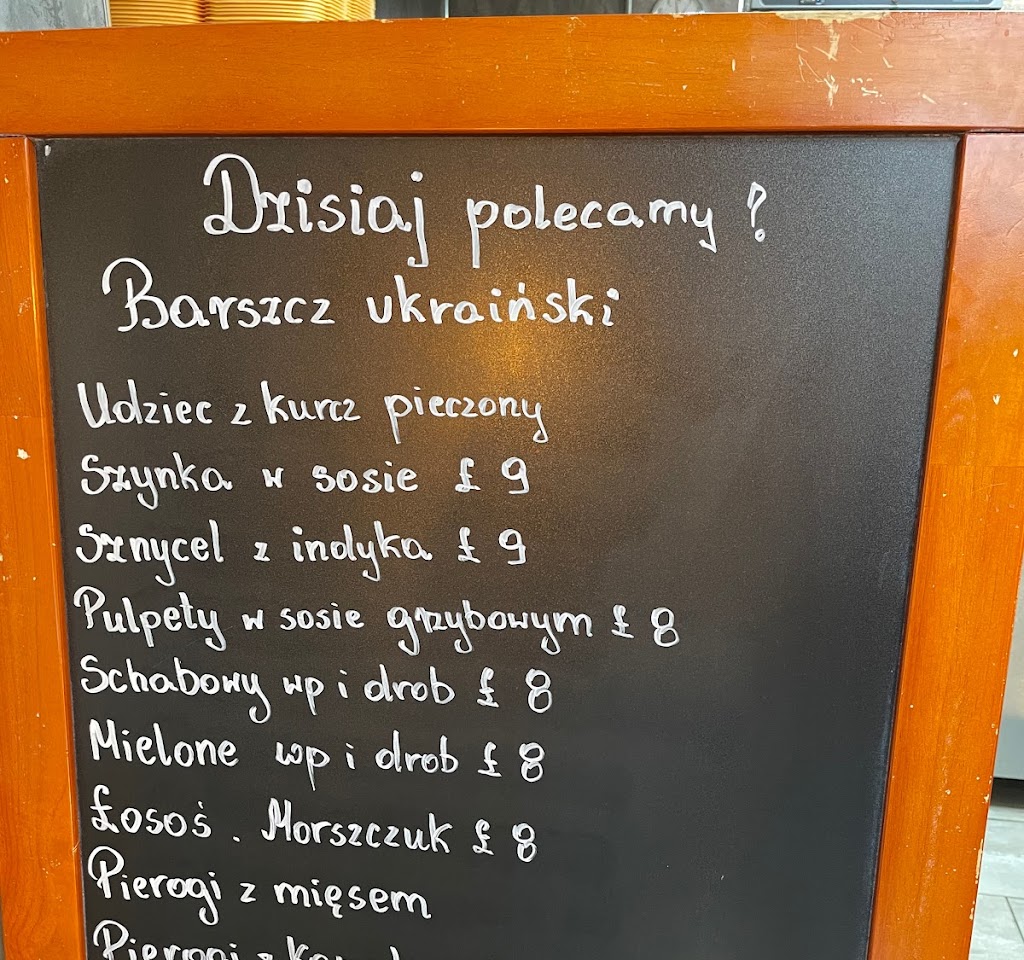 Dzisiaj polecamy !
Barszcz ukraiński
Udziec z kurcz pieczony
Szynka w sosie £ 9
Sznycel z indyka £ 9
Pulpety w sosie grzybowym £ 8
Schabowy wp i drob £ 8
Mielone wp i drob £ 8
Łosoś . Morszczuk £ 8
Pierogi z mięsem
Pierogi z